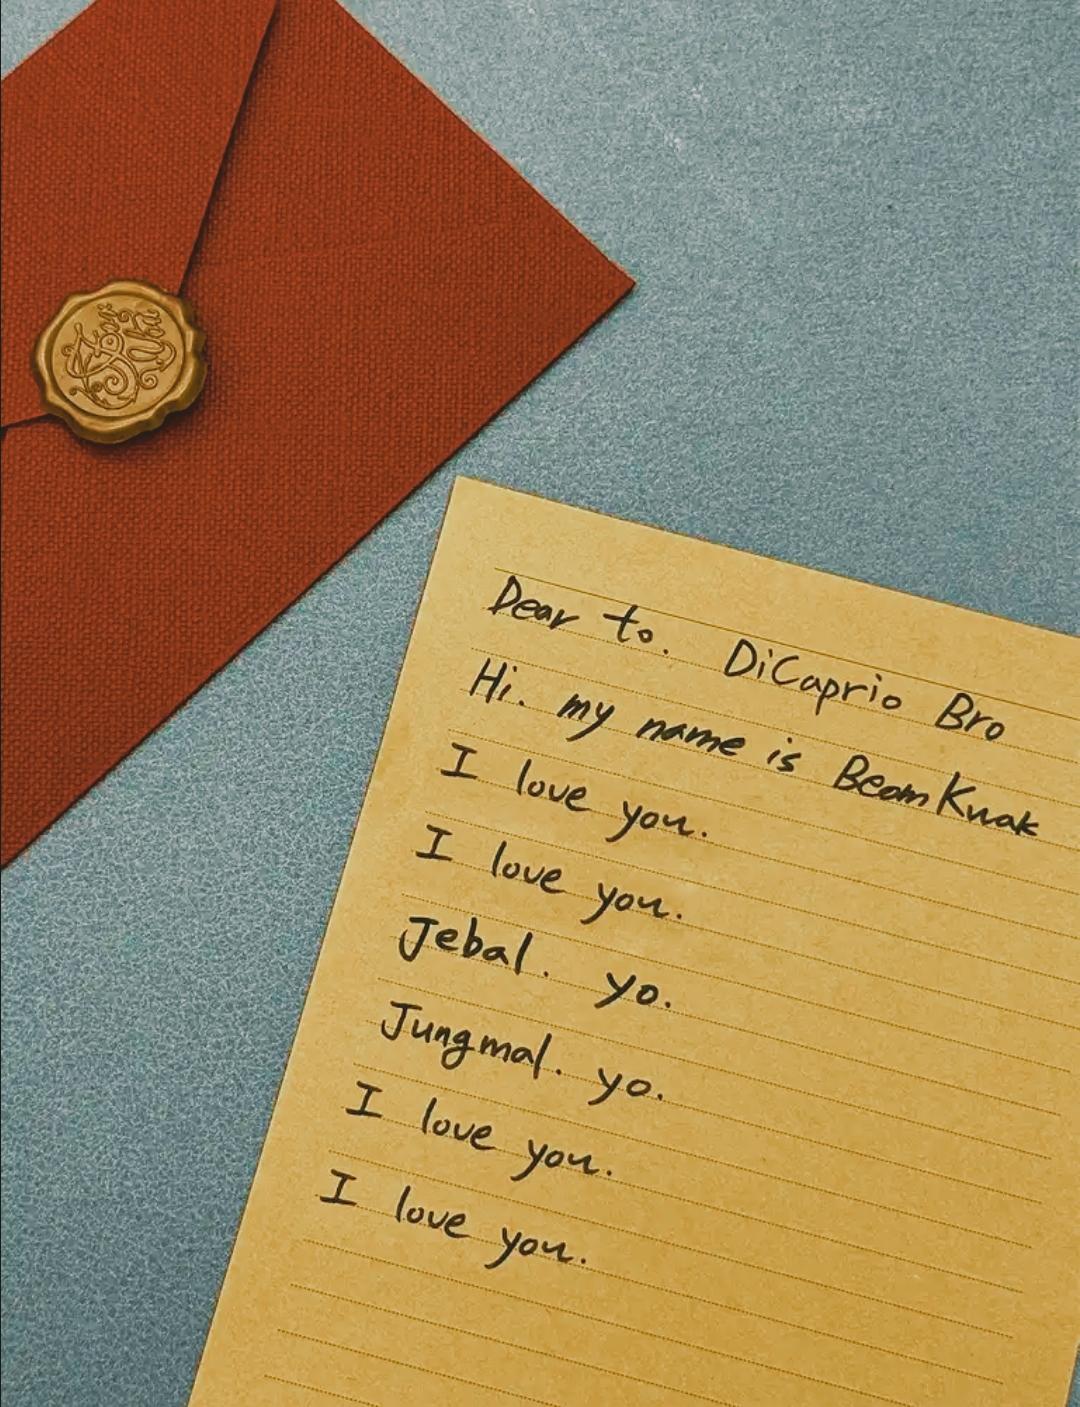 Dear to. DiCaprio Bro
Hi. my name is BeomKwak
I love you.
I love you.
Jebal. yo.
Jungmal. yo.
I love you.
I love you.